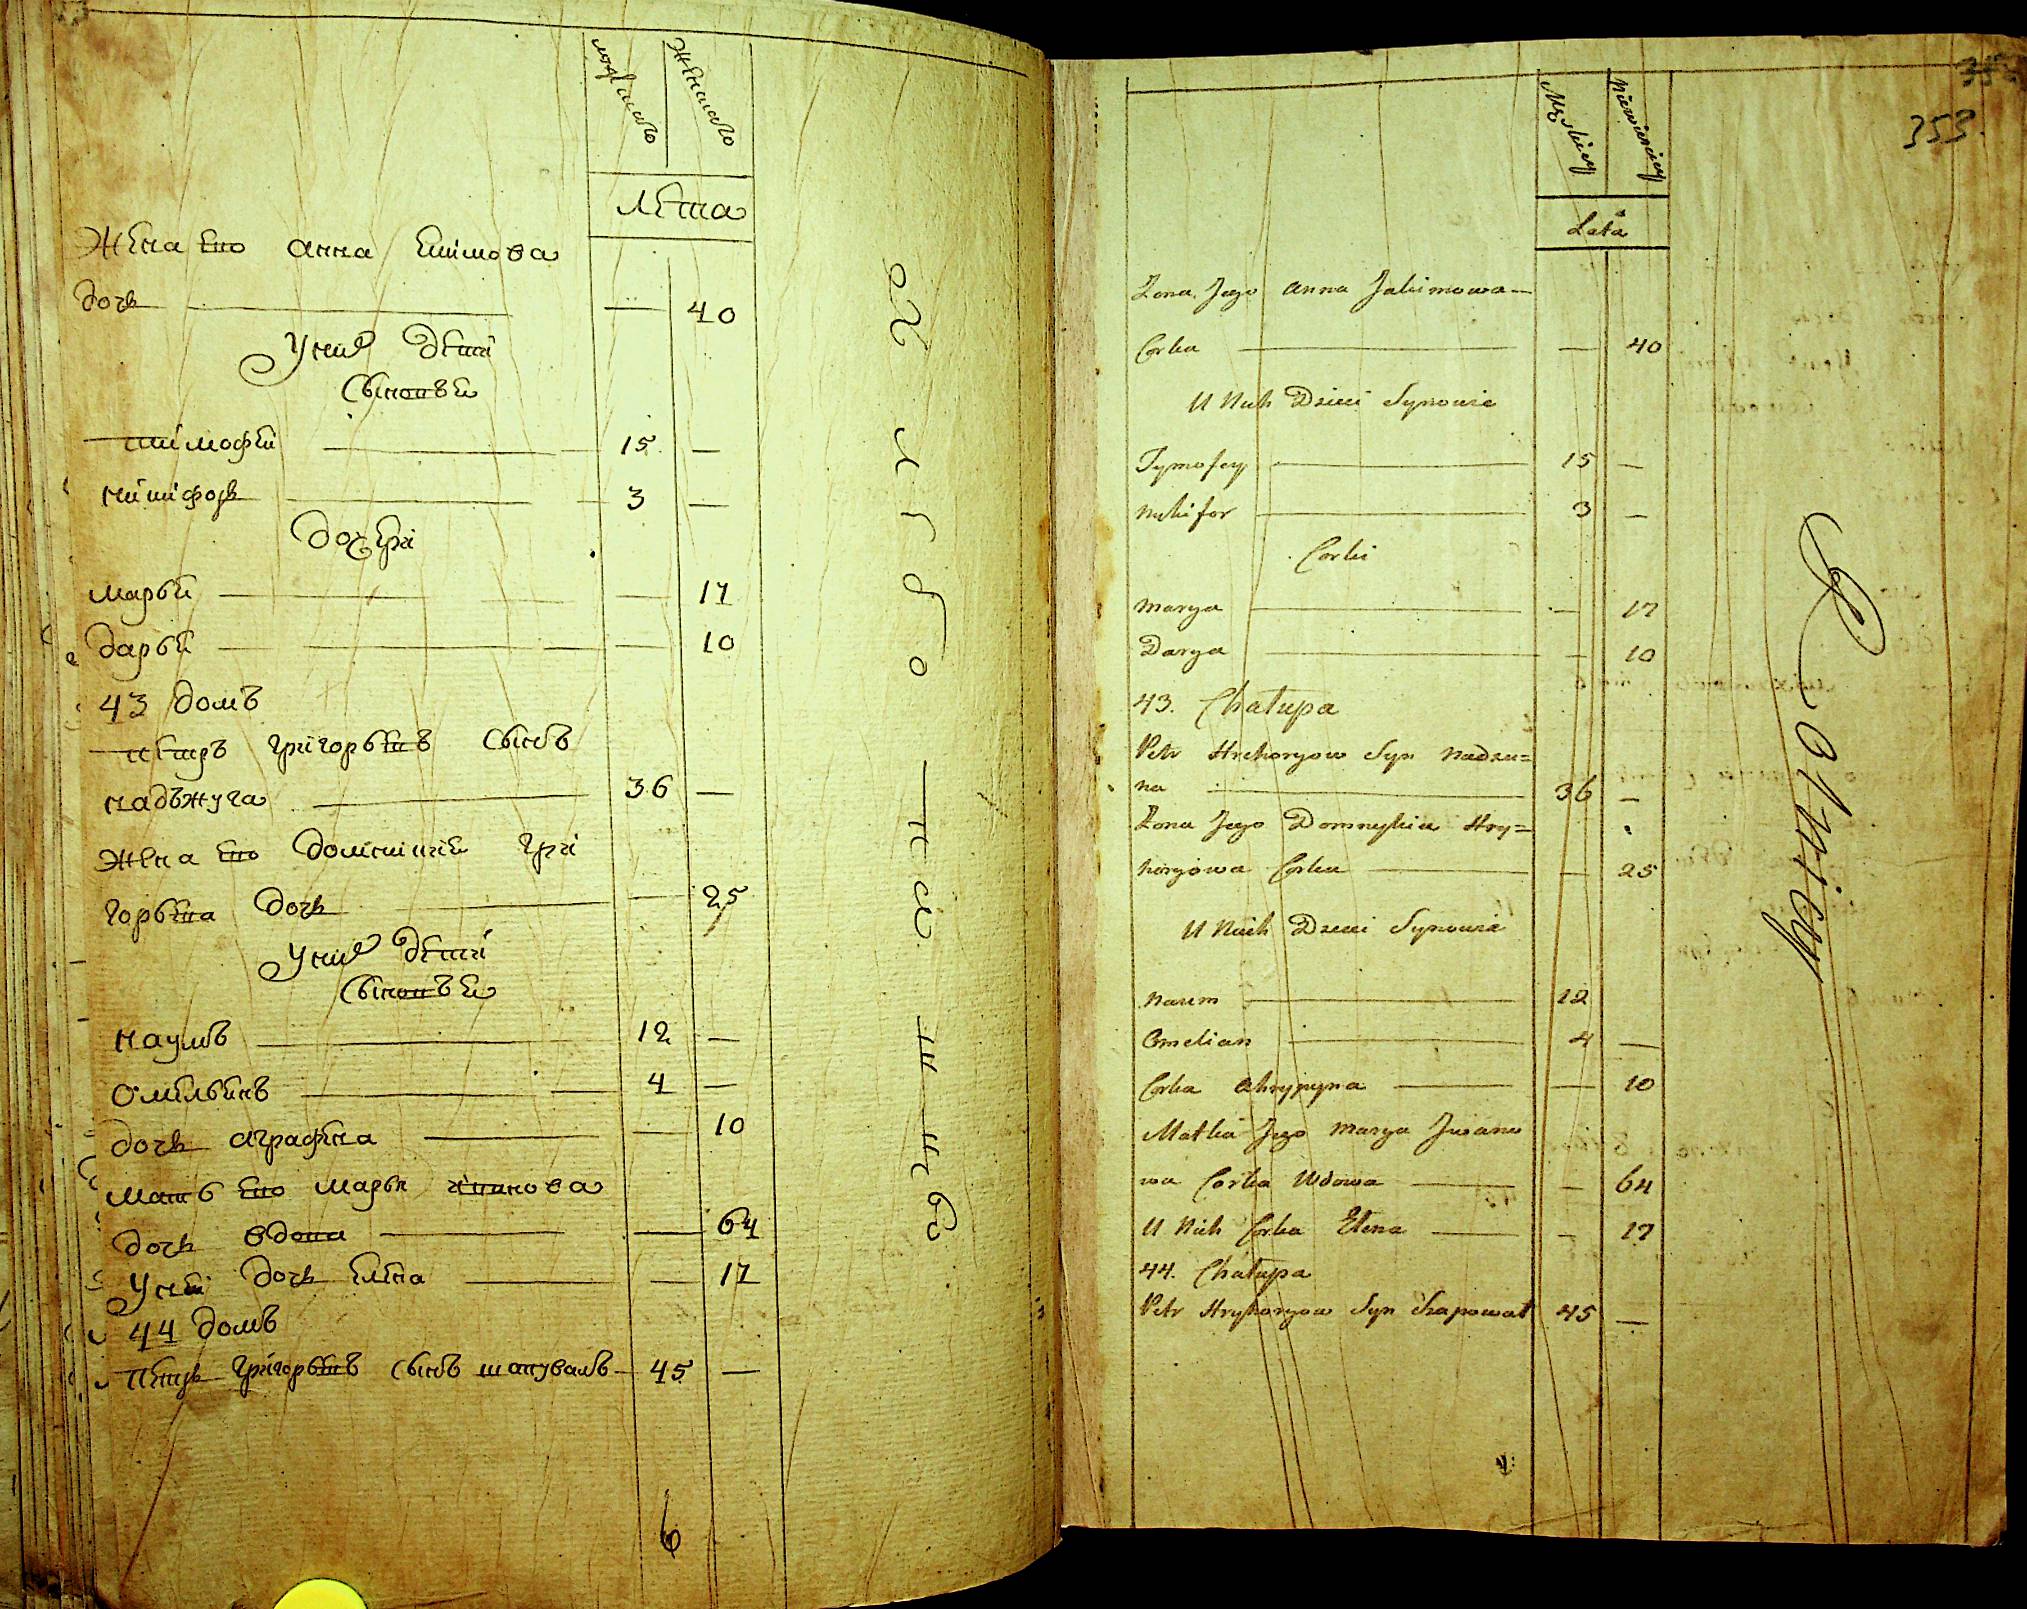 мужеска
женска
лета
Жена его анна екимова
дочь — 40
У них дети
сыновей
тимофей 15 —
никифоръ 3 —
дочери
марья — 17
дарья — 10
43 домъ
петръ григорьевъ сынъ
надъжуга 36 —
жена его домникия гри
горьева дочь — 25
У них дети
сыновей
наумъ 12 —
омельянъ 4 —
дочь аграфена — 10
мать его марья иванова
дочь вдова — 64
У ней дочь елена — 17
44 домъ
Петръ григорьевъ сынъ шапувалъ 45 —
6
353
Męskiey
Niewieściey
Lata
Żona Jego anna Jakimowa
Corka — 40
U Nich Dzieci Synowie
Tymofey 15 —
Nikifor 3 —
Corki
Marya — 17
Darya — 10
43. Chałupa
Petr Hrehoryow Syn Nadzu=
na 36 —
Żona Jego Domnykia Hry=
horyowa Corka — 25
U Nich Dzieci Synowie
Naum 12
Omelian 4 —
Corka Ahrypyna — 10
Matka Jego Marya Jwano
wa Corka Wdowa — 64
U Nich Corka Elena — 17
44. Chałupa
Petr Hryhoryow Syn Szapował 45 —